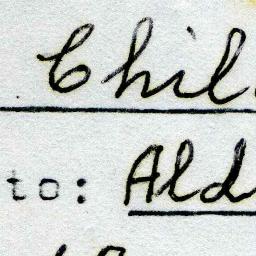 Chil
to: Ald